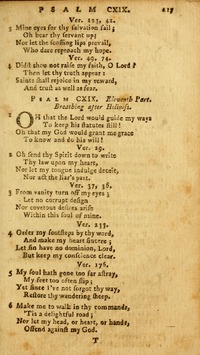 PSALM CXIX. 217
Ver. 123, 42.
3 Mine eyes for thy salvation fail;
Oh bear thy servant up;
Nor let the scoffing lips prevail,
Who dare reproach my hope.
Ver. 49, 74.
4 Didst thou not raise my faith, O Lord?
Then let thy truth appear:
Saints shall rejoice in my reward,
And trust as well as fear.
PSALM CXIX. Eleventh Part.
Breathing after Holiness.
Ver. 5, 33.
1 OH that the Lord would guide my ways
To keep his statutes still!
Oh that my God would grant me grace
To know and do his will!
Ver. 29.
2 Oh send thy Spirit down to write
Thy law upon my heart,
Nor let my tongue indulge deceit,
Nor act the liar's part.
Ver. 37, 36.
3 From vanity turn off my eyes;
Let no corrupt design
Nor covetous desires arise
Within this soul of mine.
Ver. 133.
4 Order my footsteps by thy word,
And make my heart sincere;
Let sin have no dominion, Lord,
But keep my conscience clear.
Ver. 176.
5 My soul hath gone too far astray,
My feet too often slip;
Yet since I've not forgot thy way,
Restore thy wandering sheep.
6 Make me to walk in thy commands,
'Tis a delightful road;
Nor let my head, or heart, or hands,
Offend against my God.
T